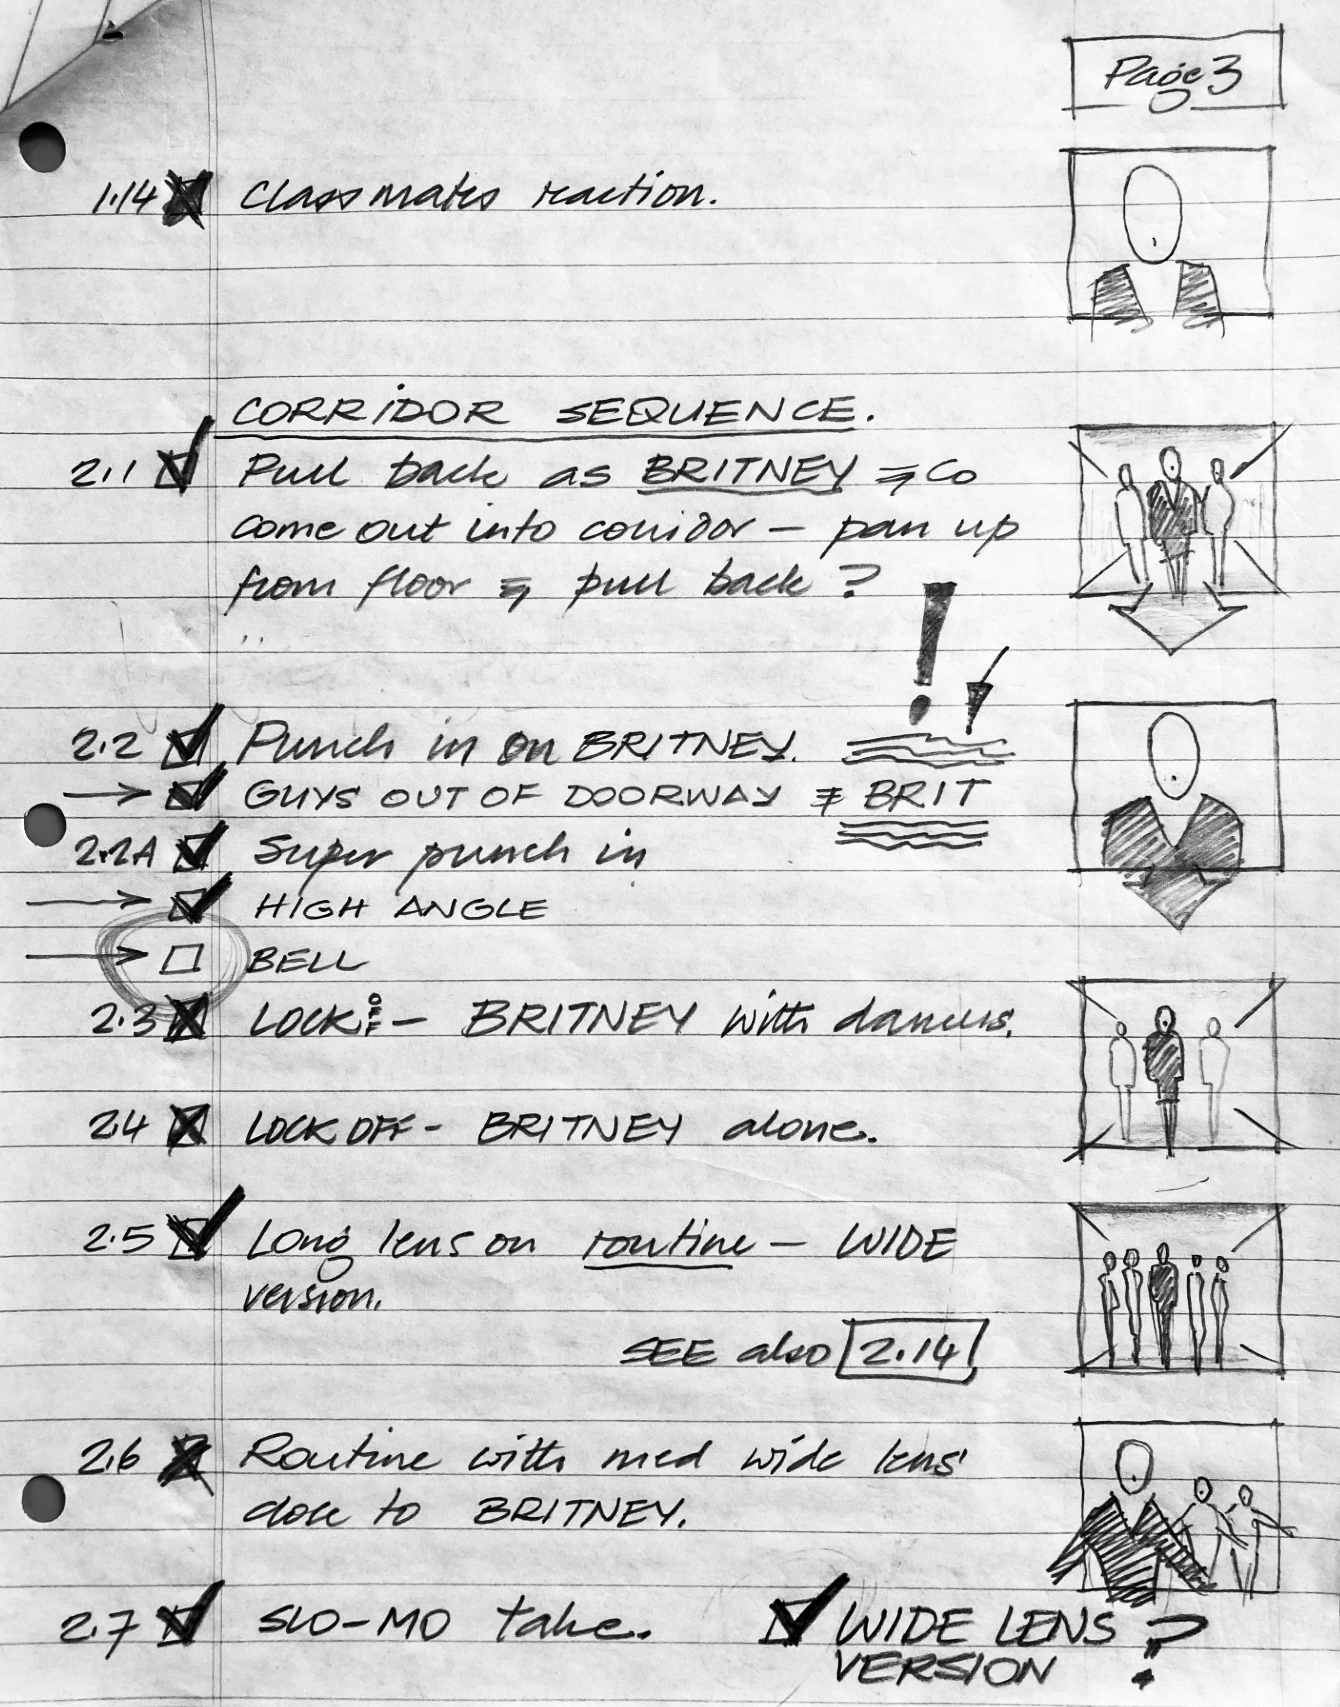 Page 3
1.14 Classmates reaction.
CORRIDOR SEQUENCE.
2.1 Pull back as BRITNEY & Co
come out into corridor — pan up
from floor & pull back ?
!
2.2 Punch in on BRITNEY.
→ GUYS OUT OF DOORWAY & BRIT
2.2A Super punch in
→ HIGH ANGLE
→ BELL
2.3 LOCK OFF — BRITNEY with dancers.
2.4 LOCK OFF - BRITNEY alone.
2.5 Long lens on routine — WIDE
version.
SEE also 2.14
2.6 Routine with med wide lens
close to BRITNEY.
2.7 SLO-MO take. WIDE LENS ?
VERSION